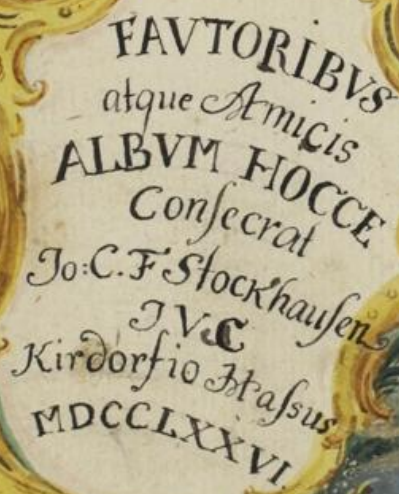 FAVTORIBVS
atque Amicis
ALBVM HOCCE
Conſecrat
Jo: C. F Stockhauſen
J V. C
Kirdorfio Haſsus
MDCCLXXVI